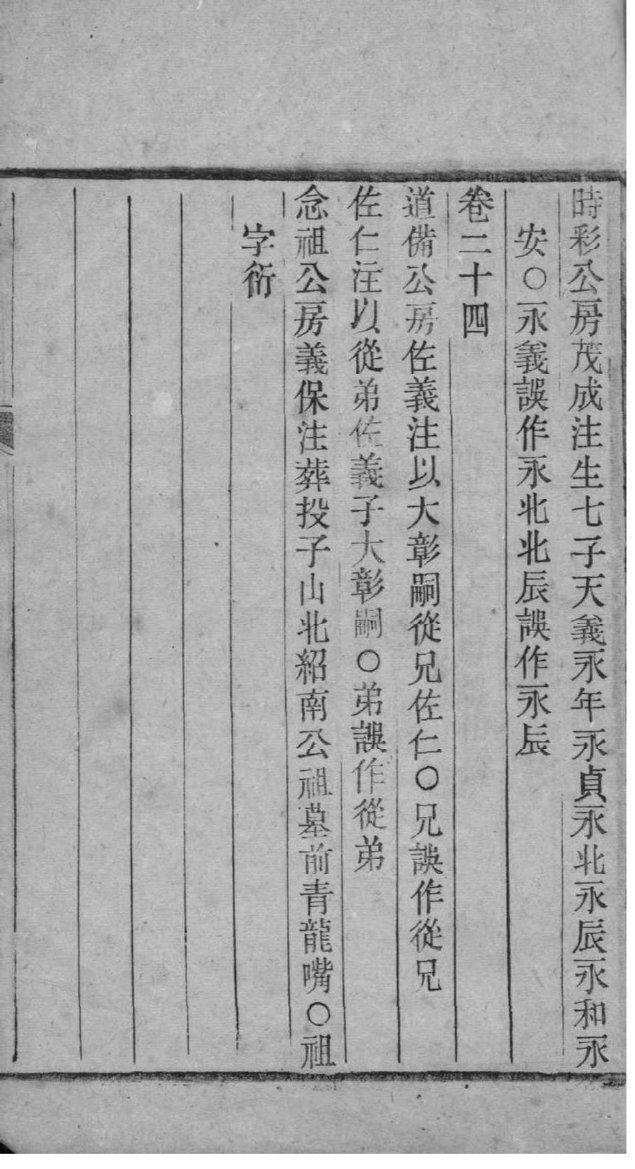 時彩公房茂成注生七子天義永年永貞永北永辰永和永
安○永義誤作永北北辰誤作永辰
卷二十四
道備公房佐義注以大彰嗣從兄佐仁○兄誤作從兄
佐仁注以從弟佐義子大彰嗣○弟誤作從弟
念祖公房義保注葬投子山北紹南公祖墓前青龍嘴○祖
字衍